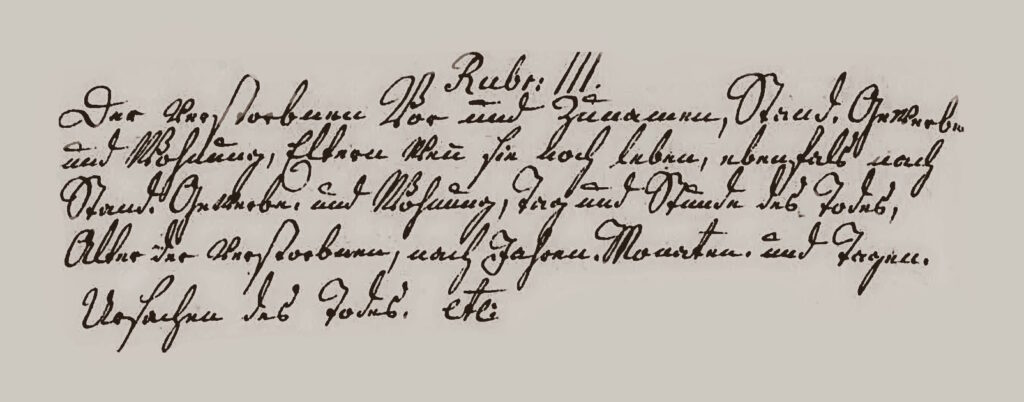 Rubr: III.
Der verstorbnen Vor und Zunamen, Stand. Gewerbe
und Wohnung, Eltern wen̄ sie noch leben, ebenfals nach
Stand. Gewerbe. und Wohnung, Tag und Stunde des Todes,
Alter der verstorbnen, nach Jahren. Monaten. und Tagen.
Ursachen des Todes. etc: